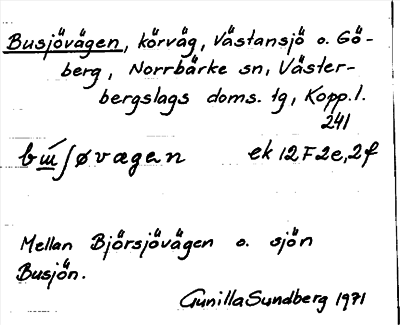 Busjövägen, körväg, Västansjö o. Gö-
berg, Norrbärke sn, Väster-
bergslags doms. tg, Kopp. l.
241
ek 12F2e,2f
Mellan Björsjövägen o. sjön
Busjön.
Gunilla Sundberg 1971